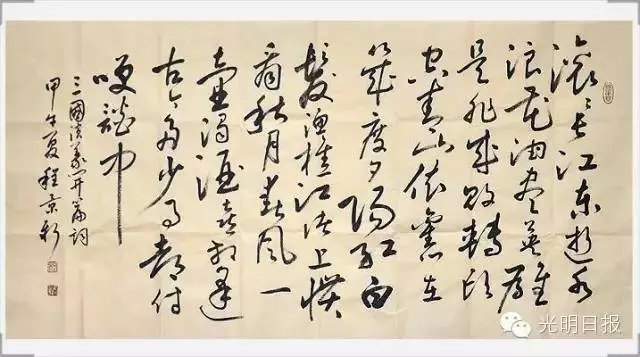 滚々长江东逝水
浪花淘尽英雄
是非成败轉头
空青山依舊在
幾度夕陽红白
髮渔樵江渚上惯
看秋月春风一
壶濁酒喜相逢
古今多少事都付
笑談中
三國演义开篇词
甲午夏程
光明日报